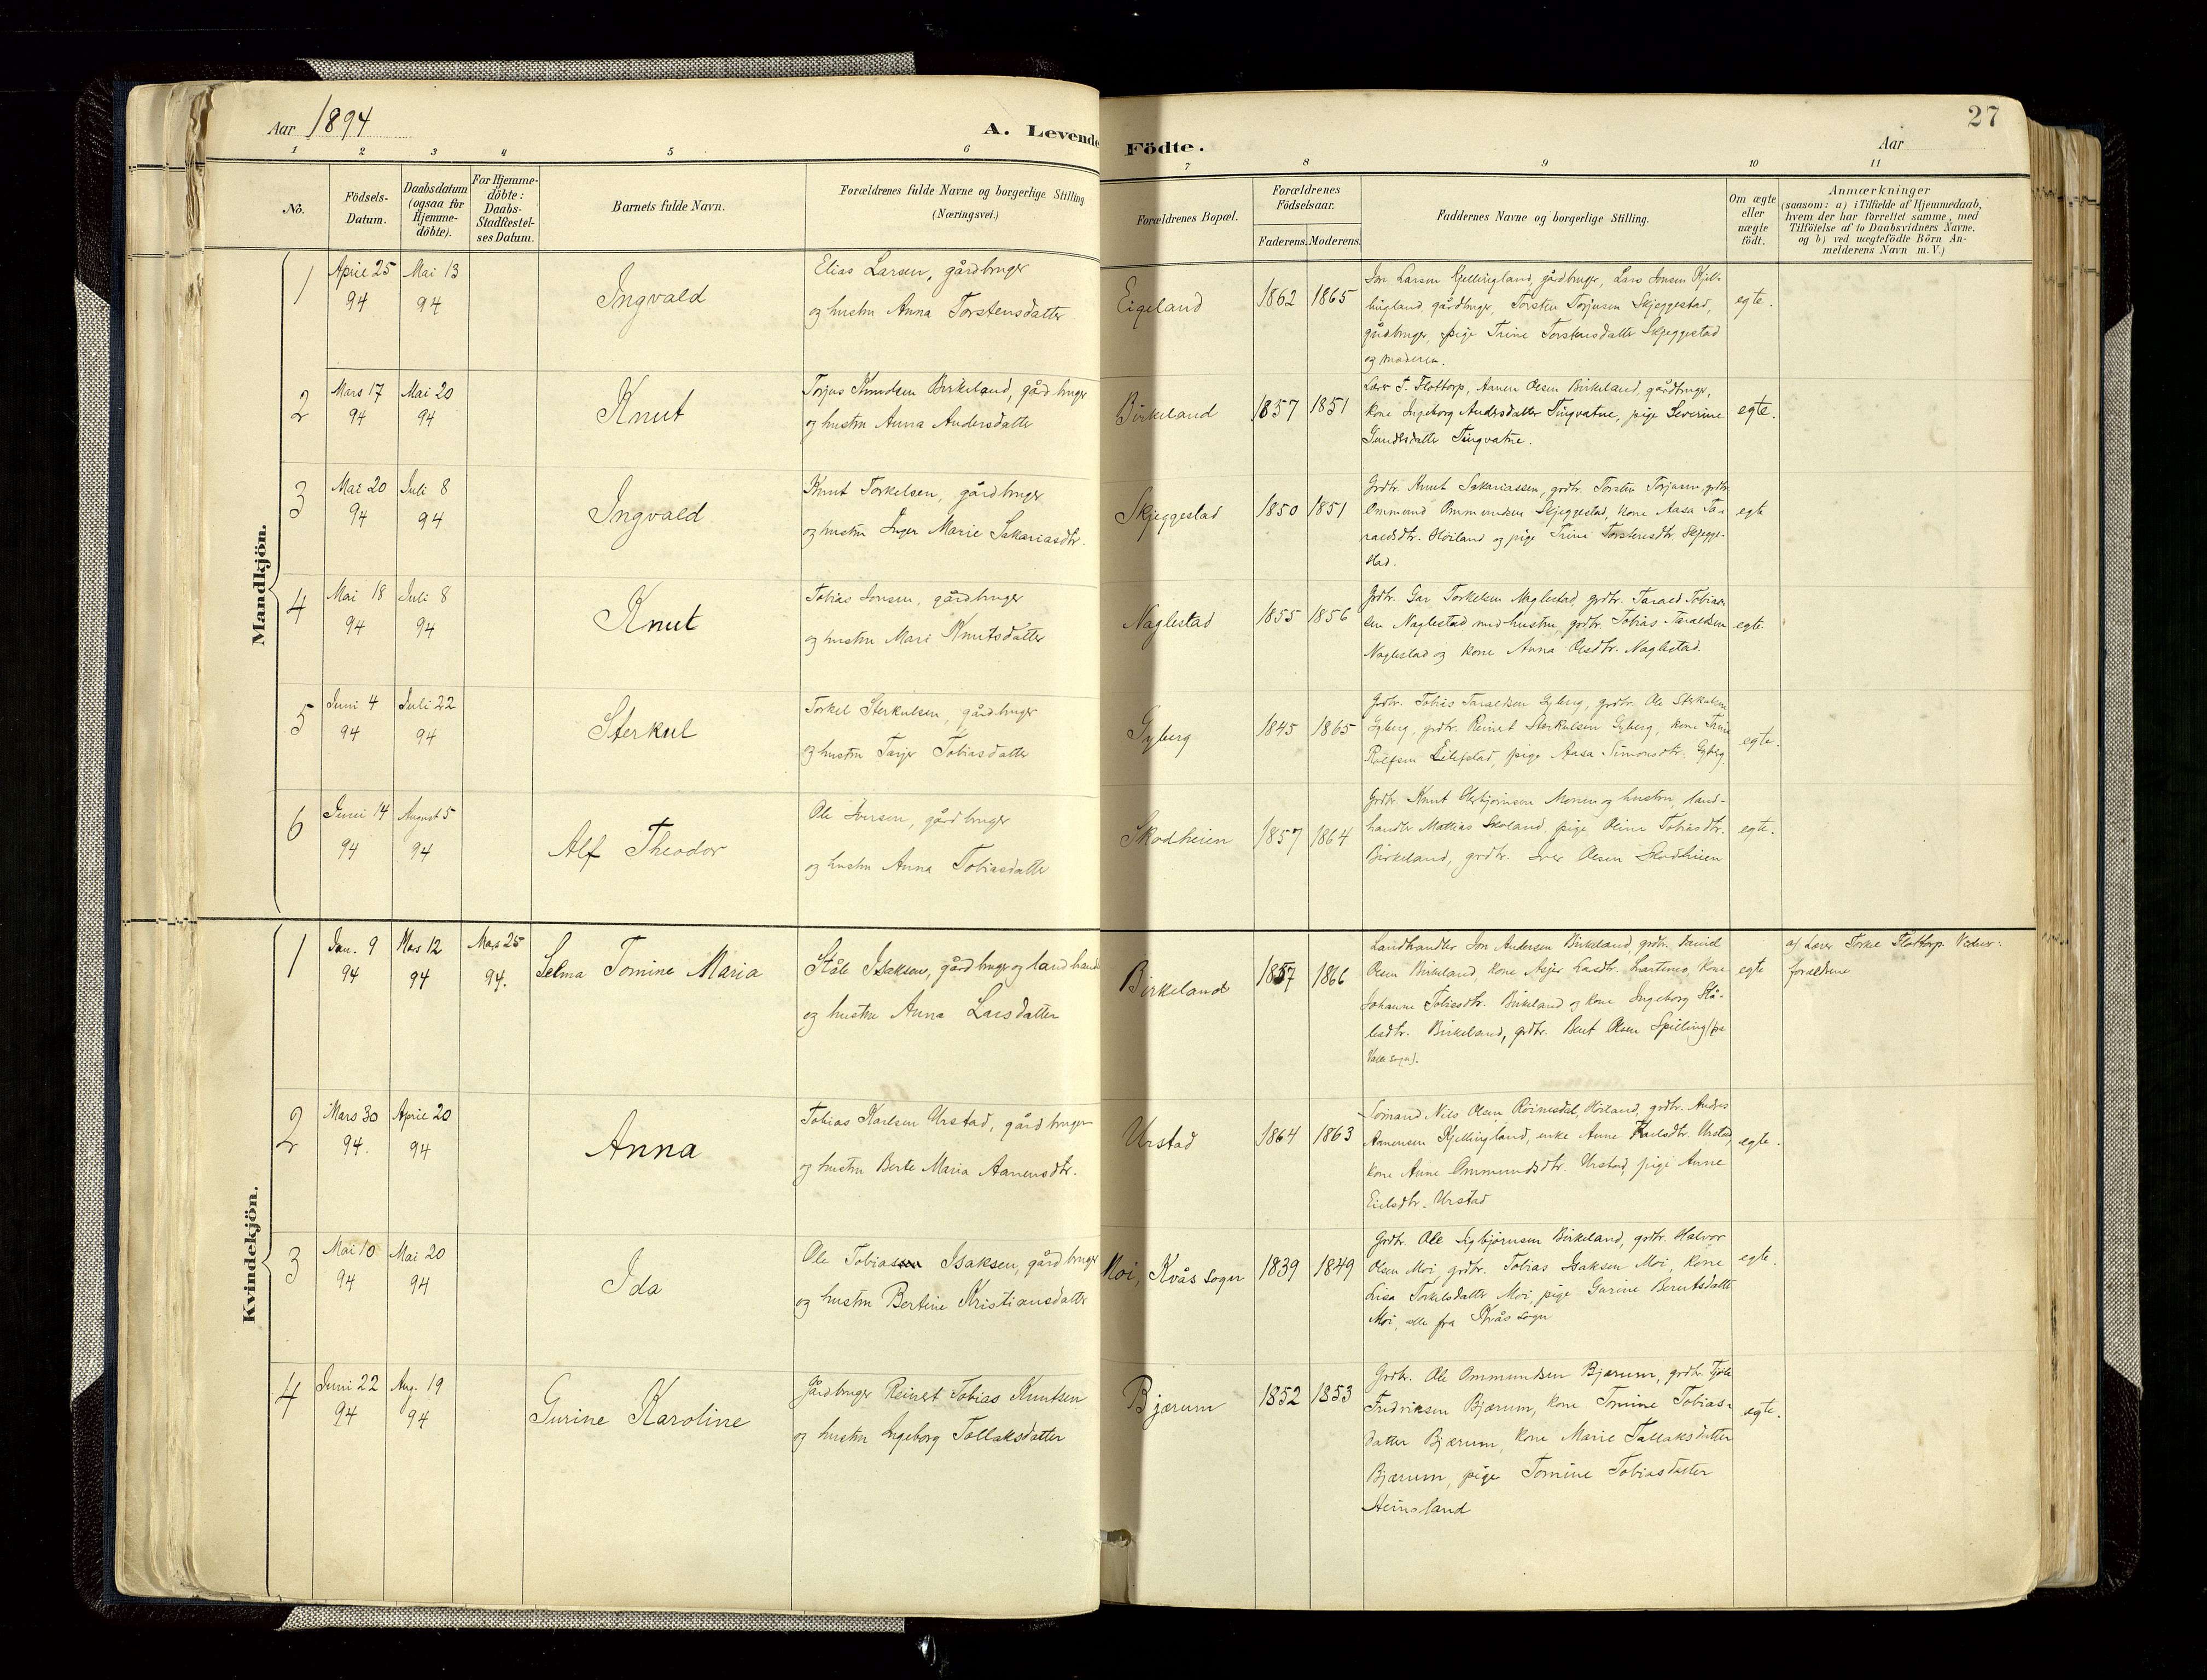 Aar 1894
A. Levende
Födte.
Aar
27
1 2 3 4 5 6 7 8 9 10 11
No.
Födsels-
Datum.
Daabsdatum
(ogsaa for
Hjemme-
döbte).
For Hjemme-
döbte:
Daabs-
Stadfæstel-
ses Datum.
Barnets fulde Navn.
Forældrenes fulde Navne og borgerlige Stilling
(Næringsvei.)
Forældrenes Bopæl.
Forældrenes
Födselsaar.
Faderens. Moderens.
Faddernes Navne og borgerlige Stilling.
Om ægte
eller
uægte
født.
Anmærkninger
(saasom: a) i Tilfælde af Hjemmedaab,
hvem der har forrettet samme, med
Tilföielse af to Daabsvidners Navne.
og b) ved uægtefödte Börn An-
melderens Navn m. V.)
Mandkjön.
1
April 25
94
Mai 13
94
Ingvald
Elias Larsen, gårdbruger
og hustru Anna Torstensdatter
Eigeland
1862 1865
Jon Larsen Kjellingland, gårdbruger, Lars Jonsen Kjel-
lingland, gårdbruger, Torsten Torjusen Skjeggestad,
gårdbruger, pige Trine Torstensdatter Skjeggestad
og moderen.
egte.
2
Mars 17
94
Mai 20
94
Knut
Torjus Knudsen Birkeland, gårdbruger
og hustru Anna Andersdatter
Birkeland
1857 1851
Lærer T. Flottorp, Aanen Olsen Birkeland, gårdbruger,
kone Ingeborg Andersdatter Tingvatne, pige Severine
Tingvatne.
egte.
3
Mai 20
94
Juli 8
94
Ingvald
Knut Torkelsen, gårdbruger
og hustru Inger Marie Sakariasdtr.
Skjeggestad
1850 1851
Grdbr. Knut Sakariassen, grdbr. Torsten Torjusen, grdbr.
Ommund Ommundsen Skjeggestad, kone Aasa Ta-
raldsdtr. Høiland og pige Trine Torstensdtr. Skjegge-
stad.
egte
4
Mai 18
94
Juli 8
94
Knut
Tobias Jonsen, gårdbruger
og hustru Mari Knutsdatter
Naglestad
1855 1856
Grdbr. Torkelsen Naglestad, grdbr. Tarald Tobias-
sen Naglestad med hustru, grdbr. Tobias Taraldsen
Naglestad og kone Anna Olsdtr. Naglestad.
egte.
5
Juni 4
94
Juli 22
94
Sterkul
Torkel Sterkulsen, gårdbruger
og hustru Tarjer Tobiasdatter
Gyberg
1845 1865
Grdbr. Tobias Taraldsen Gyberg, grdbr. Ole Sterkulsen
Gyberg, grdbr. Reinert Sterkulsen Gyberg, kone Trine
Rolfsen Eilefstad, pige Aasa Simonsdtr. Gyberg
egte.
6
Juni 14
94
August 5
94
Alf Theodor
Ole Iversen, gårdbruger
og hustru Anna Tobiasdatter
Skodheien
1857 1864
Grdbr. Knut Moren og hustru, land-
handler Mathias Skoland, pige Oline Tobiasdtr.
Birkeland, grdbr. Iver Olsen Skodheien
egte.
Kvindekjön.
1
Jan. 9
94
Mars 12
94
Mars 25
94.
Selma Tomine Maria
Ståle Isaksen, gårdbruger og landhand
og hustru Anna Larsdatter
Birkeland
1857 1866
Landhandler Jon Andersen Birkeland, grdbr. Daniel
Olsen Birkeland, kone Asjer Larsdtr. kone
Johanne Tobiasdtr. Birkeland og kone Ingeborg Stå-
lesdtr. Birkeland, grdbr. Bent Olsen Spilling (fra
Valle sogn).
egte
af Lærer Torkel Flottorp. Vidner:
forældrene
2
Mars 30
94.
April 20
94
Anna
Tobias Karlsen Urstad, gårdbruger
og hustru Berte Maria Aanensdtr.
Urstad
1864 1863
Sömand Nils Olsen Höiland, grdbr. Andreas
Aanensen Kjellingland, enke Anne Karlsdtr. Urstad,
kone Anne Ommundsdtr. Urstad, pige Anne
Urstad
egte.
3
Mai 10
94
Mai 20
94
Ida
Ole Tobiassen Isaksen, gårdbruger
og hustru Bertine Kristiansdatter
Moi, Kvås sogn
1839 1849
Grdbr. Ole Sigbjörnsen Birkeland, grdbr. Halvor
Olsen Moi, grdbr. Tobias Isaksen Moi, kone
Lisa Torkelsdatter Moi, pige Gurine Berntsdatter
Moi, alle fra Kvås sogn
egte.
4
Juni 22
94
Aug. 19
94
Gurine Karoline
Gårdbruger Reinert Tobias Knutsen
og hustru Ingeborg Tallaksdatter
Bjærum
1852 1853
Grdbr. Ole Ommundsen Bjærum, grdbr.
Fredriksen Bjærum, kone Tomine Tobias-
datter Bjærum, kone Marie Tallaksdatter
Bjærum, pige Tomine Tobiasdatter
Heimsland
egte.